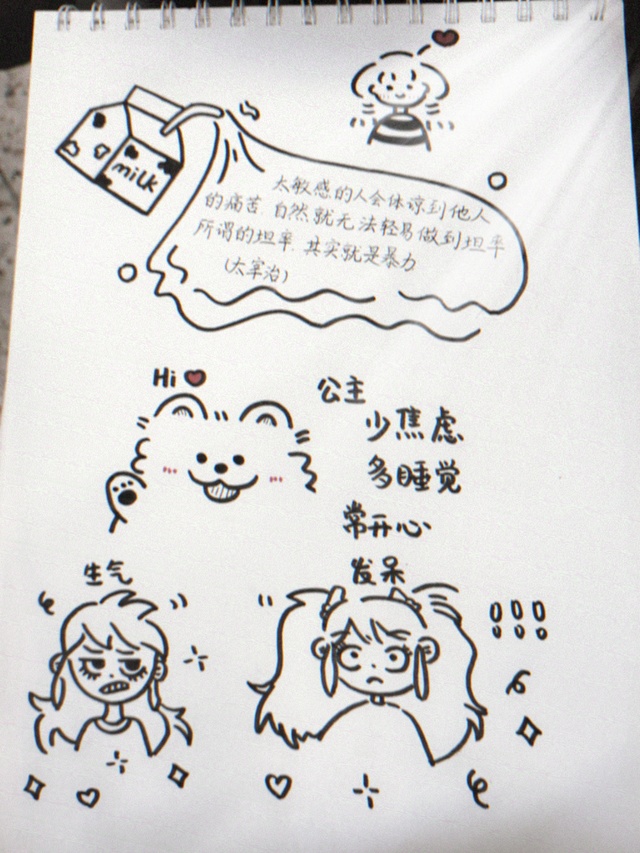 milk
太敏感的人会体谅到他人
的痛苦.自然就无法轻易做到坦率
所谓的坦率.其实就是暴力
(太宰治)
Hi
公主
少焦虑
多睡觉
常开心
生气
发呆
!!!